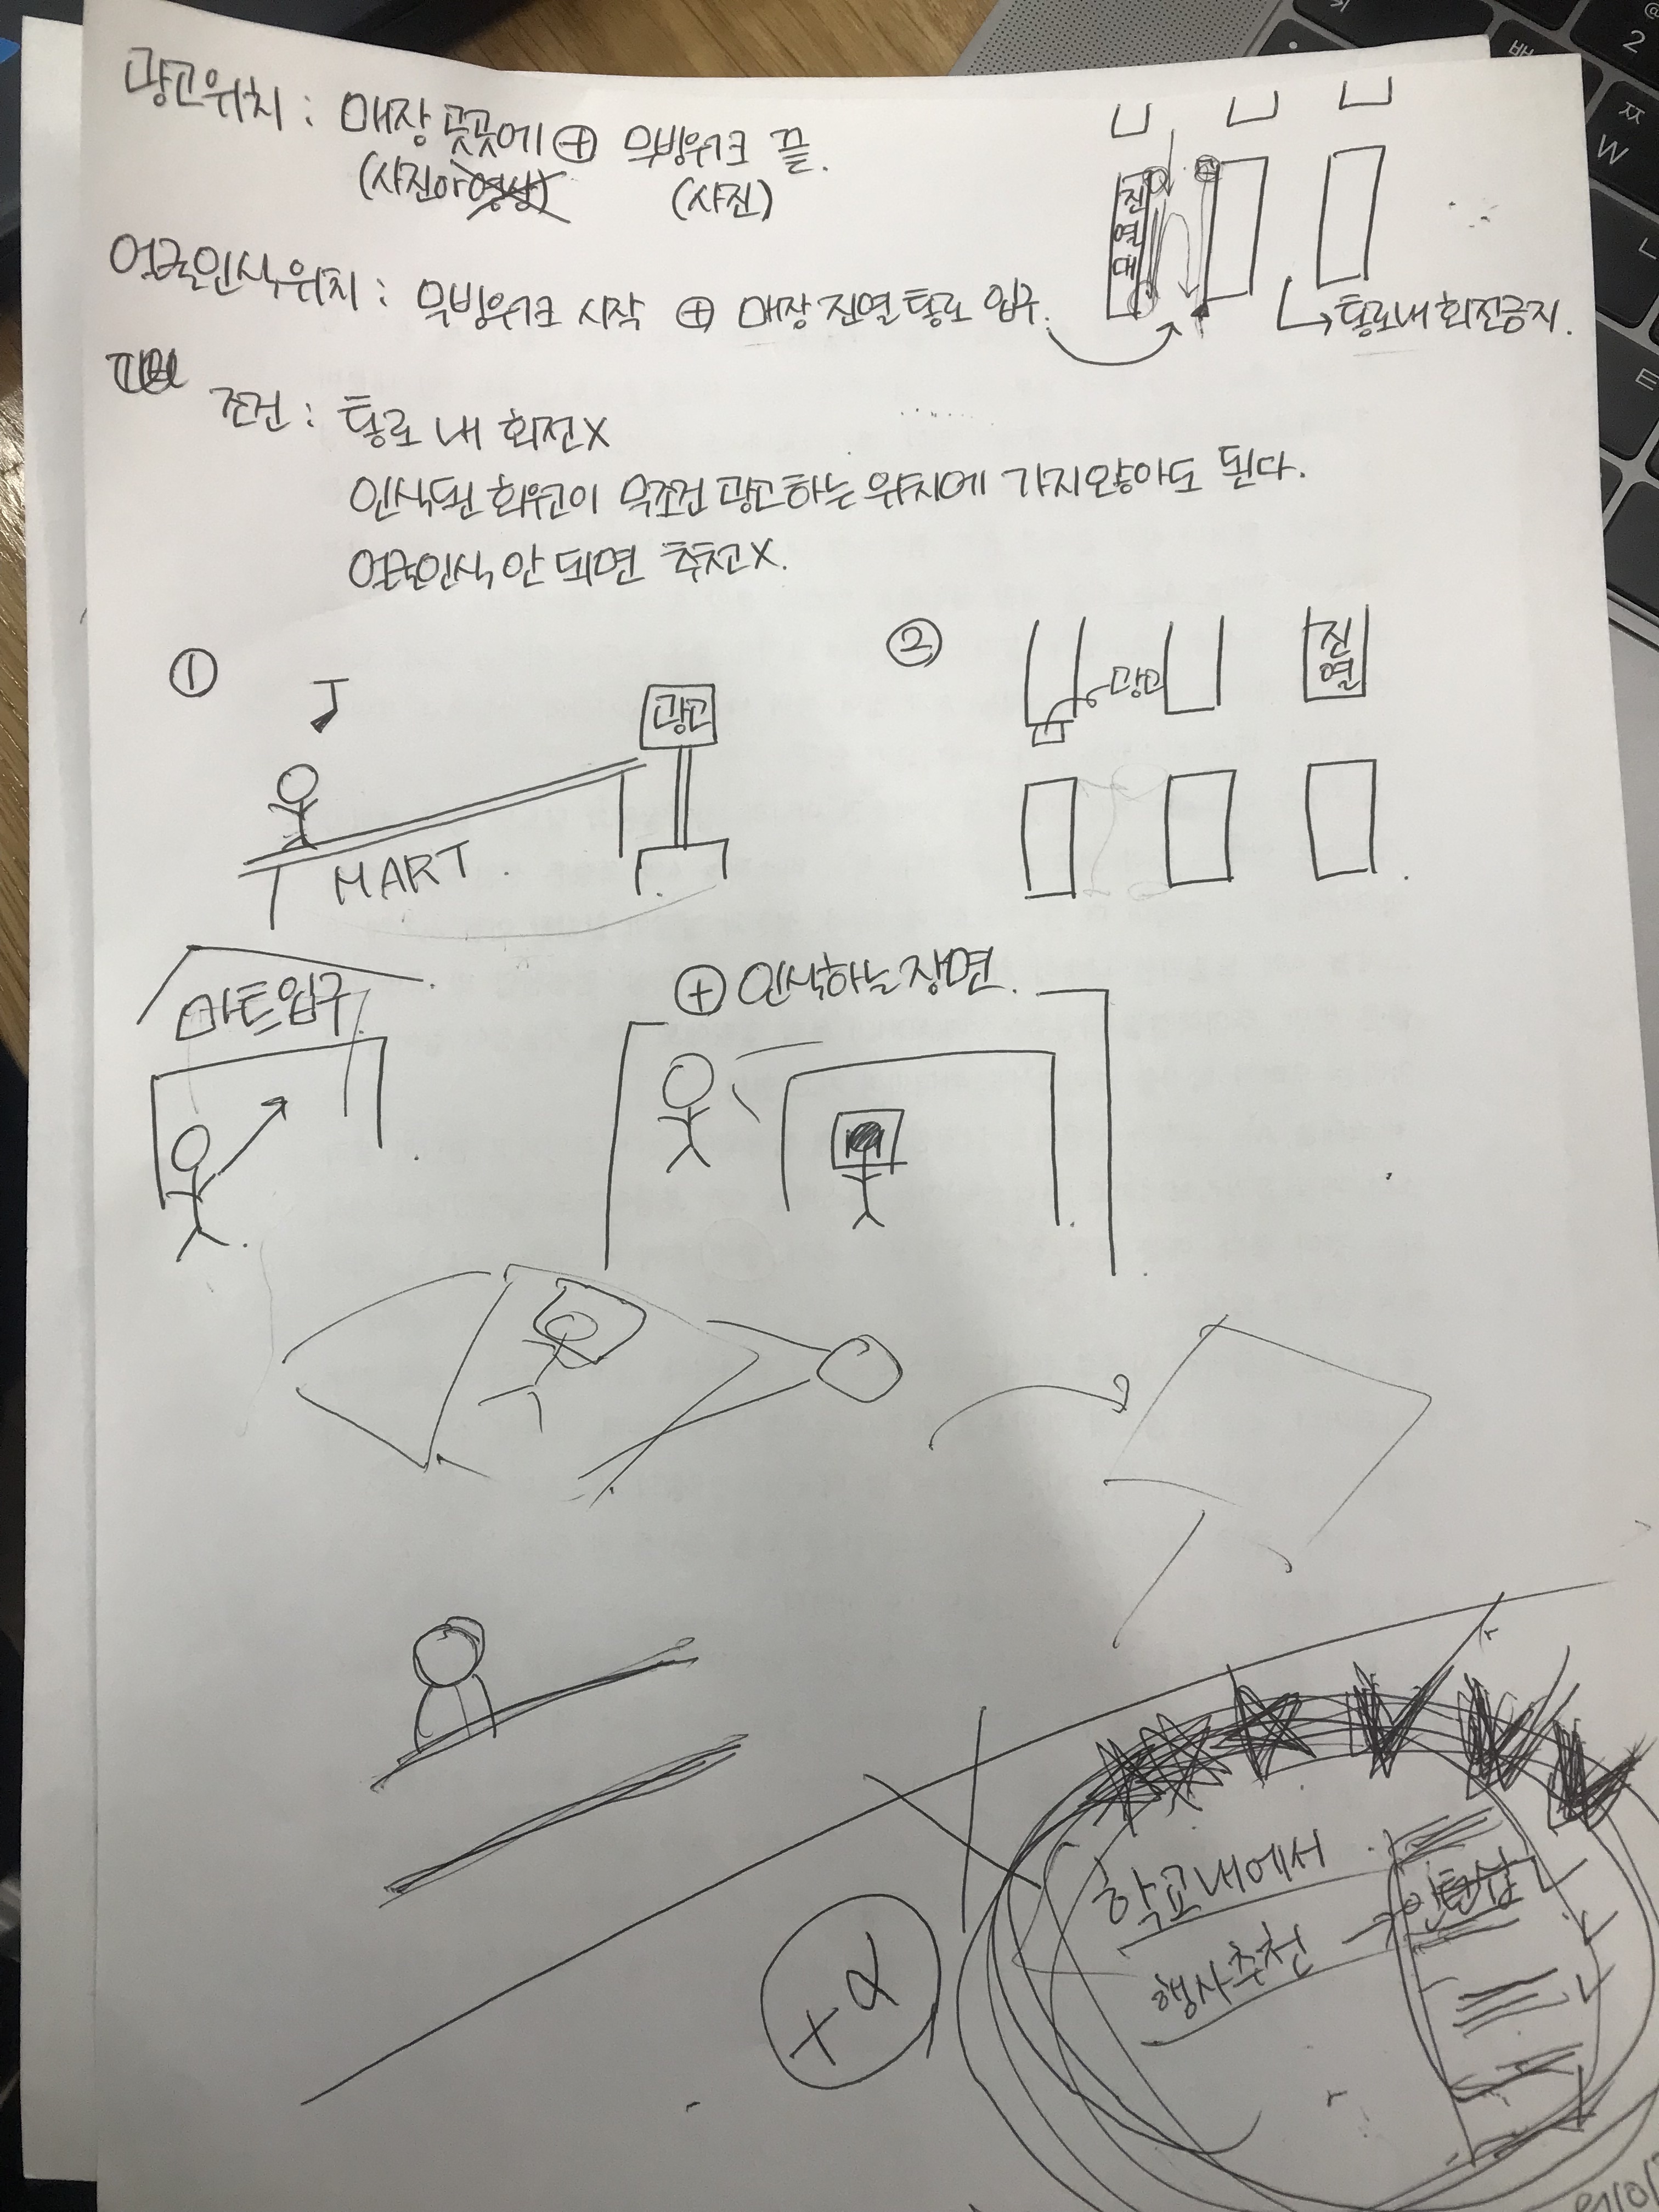 광고위치 : 매장 곳곳에 ⊕ 무빙워크 끝.
(사진아영상) (사진)
진열대
얼굴인식위치 : 무빙워크 시작 ⊕ 매장 진열 통로 입구.
↳ 통로내 회전금지.
조건 : 통로 내 회전X
인식된 회원이 무조건 광고하는 위치에 가지않아도 된다.
얼굴인식 안 되면 추천X.
①
광고
MART.
②
광고
진열
마트입구
⊕ 인식하는 장면.
+α
학교내에서
행사추천 →